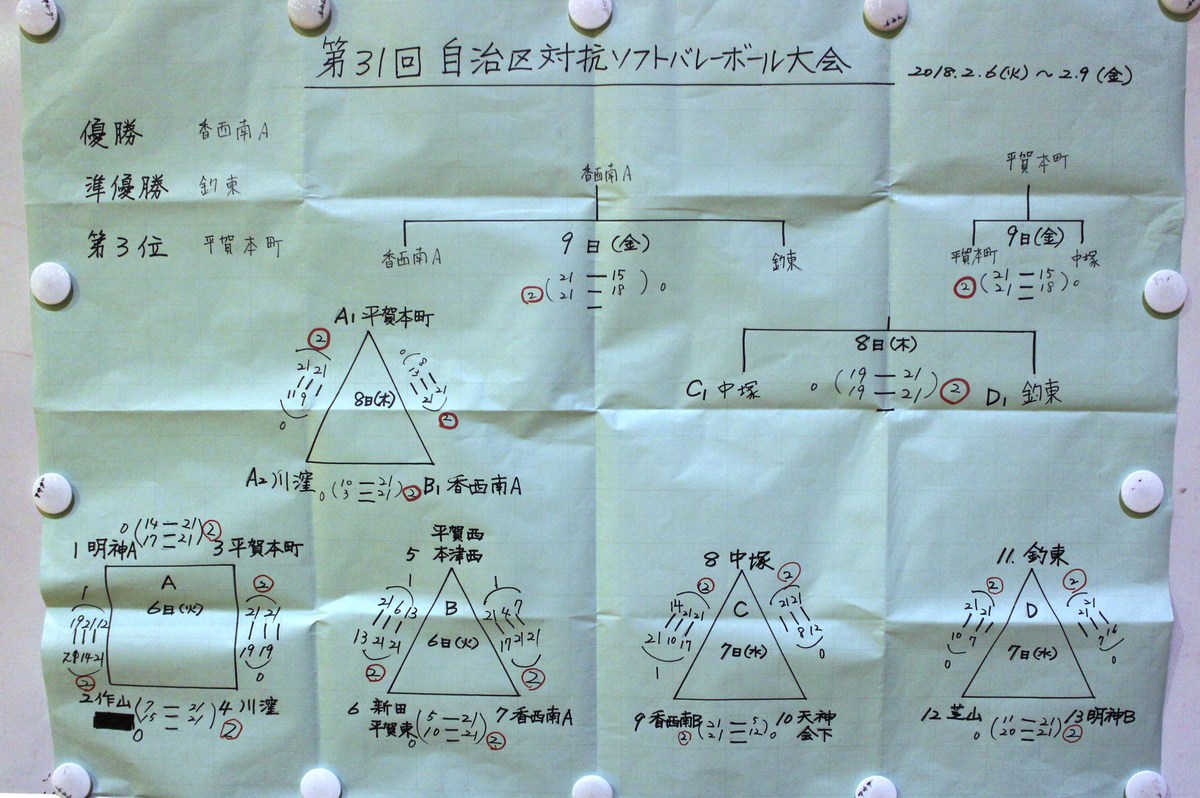 第31回 自治区対抗ソフトバレーボール大会 2018.2.6(火)～2.9(金)
優勝 香西南A
準優勝 釣東
第3位 平賀本町
香西南A
9日(金)
香西南A 釣東
② (21 — 15
21 — 18) 0
平賀本町
9日(金)
平賀本町 中塚
② (21 — 15
21 — 18) 0
8日(木)
C1 中塚 D1 釣東
0 (19 — 21
19 — 21) ②
A1 平賀本町
②
21 21
11 9
0
8日(木)
0
8
13
21
21
②
A2 川窪 B1 香西南A
0 (10 — 21
3 — 21) ②
0 (14 — 21
17 — 21) ②
1 明神A 3 平賀本町
A
6日(火)
1
19 21 12
14 21
②
②
21 21
19 19
0
2 作山 4 川窪
(7 — 21
15 — 21) ②
0
平賀西
5 本津西
B
6日(火)
1
21 6 13
13 21 21
②
1
21 4 7
17 21 21
②
6 新田
平賀東
7 香西南A
0 (5 — 21
10 — 21) ②
8 中塚
C
7日(水)
②
14 21 21
21 10 17
1
②
21 21
8 12
0
9 香西南B 10 天神
会下
② (21 — 5
21 — 12) 0
11. 釣東
D
7日(水)
②
21 21
10 7
0
②
21 21
7 16
0
12 芝山 13 明神B
0 (11 — 21
20 — 21) ②